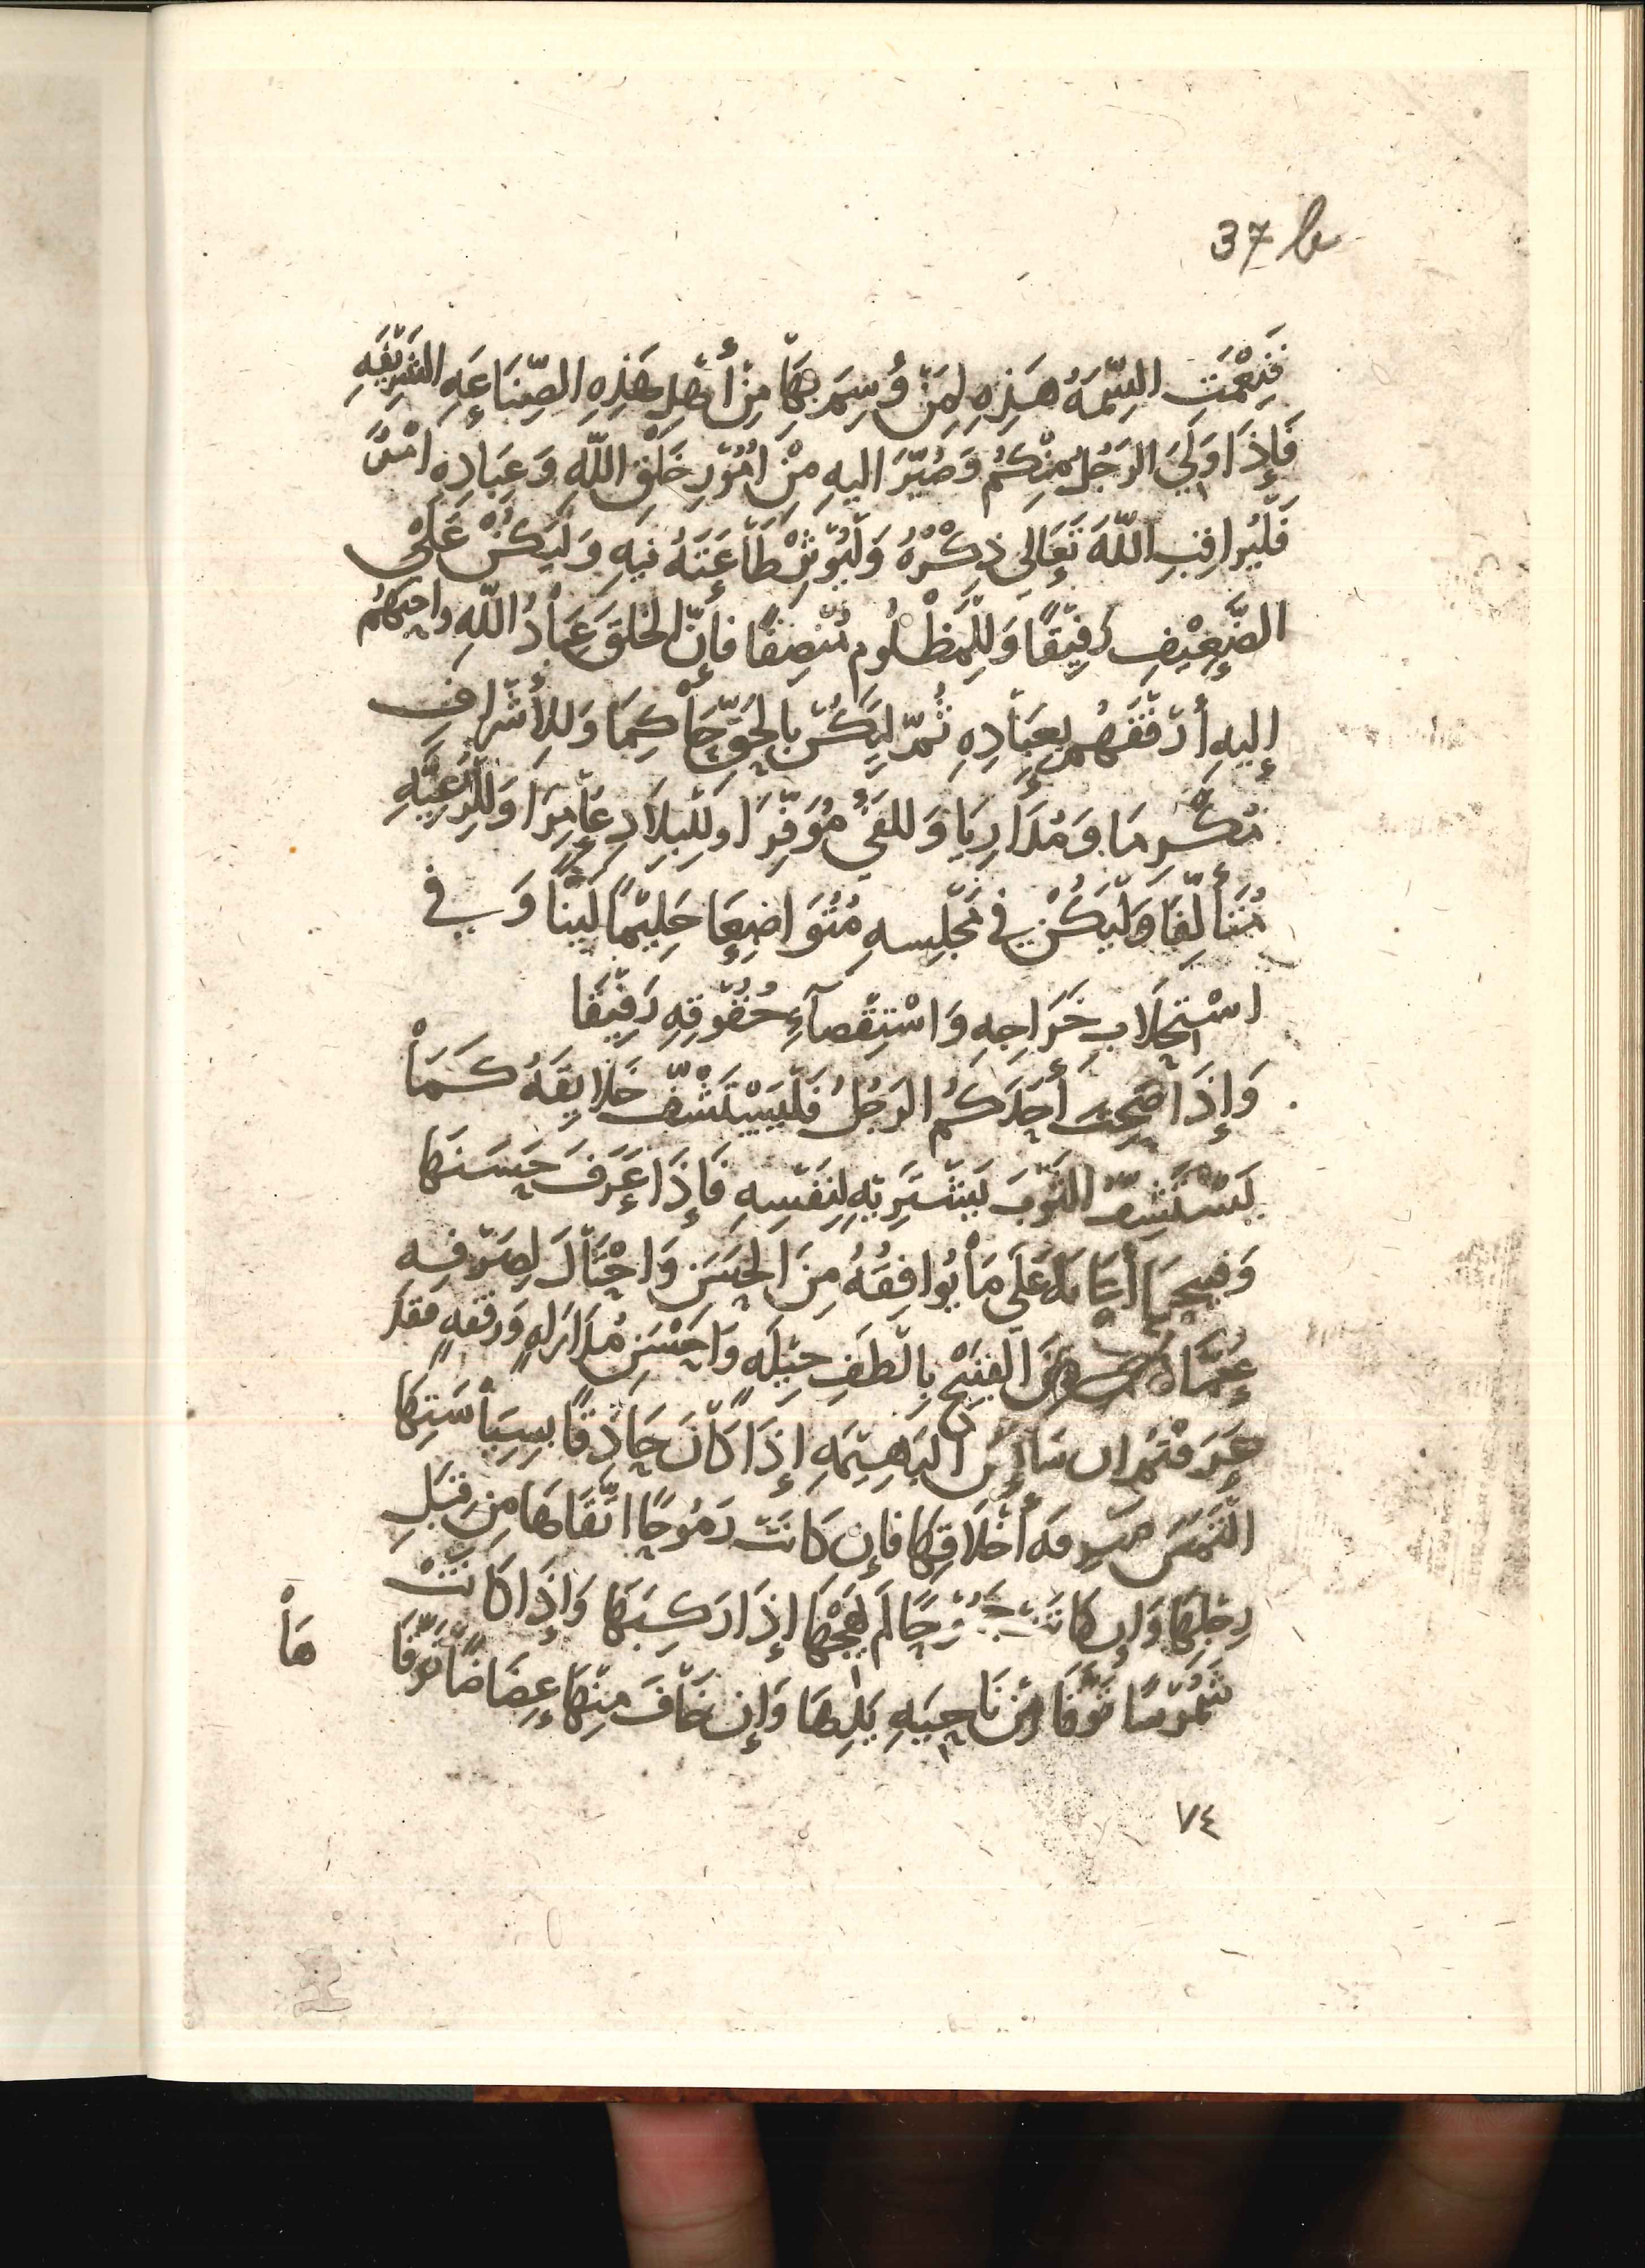 37 b
فَنِعْمَتِ السِّمَةُ هَذِهِ لِمَنْ وُسِمَ بِهَا مِنْ أَهْلِ هَذِهِ الصِّنَاعَةِ الشَرِيْفَهِ
فَإِذَا وَلِيَ الرَجُلُ مِنْكُمْ وَصُيِّرَ اليهِ مِنْ امُوْرِ خَلْقِ اللّهِ وَعِبَادِهِ امْرٌ
فَلْيُراقِبِ اللّهَ تَعَالِى ذِكْرُهُ وَلْيُوْثِرْ طَاعَتَهُ فيهِ وَلْيَكُنْ عَلَى
الضَّعِيْفِ رَفِيْقًا وَلِلْمَظْلُومِ مُنْصِفًا فَإِنَّ الخَلقَ عِبَادُ اللّهِ واحبهُم
إِليهِ أرْفَقَهُم بِعِبَادِهِ ثُمَّ لِيَكُنْ بِالحَقِّ حَاكِمَا وَللِأَشْرافِ
مُكْرِمَا وَمُدَارِيَا وَللفَيْءِ مُوَفِّرَا وللْبِلَادِ عَامِرَا وَللْرَعِيَّهِ
مُتَأَلِّفَا وَلْيَكُنْ في مَجْلِسهِ مُتُوَاضِعَا حَلِيْمًا لَيِّنًا وَ في
اسْتِجْلَابِ خَرَاجِهِ وَاسْتِقْصَآءِ حُقُوْقِهِ رَفِيْقَا
وَإِذَا صَحِبَ أَحَدَكُم الرَجُلُ فَلْيَسْتَشْفِّ خَلايِقَهُ كَمَاْ
يَسْتَشِفُّ الثَوْبَ يَشْتَرِيْهِ لِنَفْسِهِ فَإِذَا عَرَفَ حَسَنَهَا
وَقبيحهَا أعَانَه عَلَى مَاْ يُوافِقُهُ مِنَ الحَسَنِ وَاحْتَاْلَ لِصَرْفِهِ
عَمَّا مِنَ القَبِيْحِ بِالْطَفِ حِيْلَهٍ وَاحْسَنِ مُدَارَاهٍ وَرِفْقهٍ فقد
عَرَفْتم ان سَايِسَ البَهِيْمَهِ إِذَا كَاْنَ حَاذِقًا بِسِيَاْسَتِهَا
التَمَسَ معرفه أَخْلَاقِهَا فإِن كَانَتْ رَمُوحًا اتَّقَاهَا مِن قِبَلِ
رِجْلِهَا وَإِن كَانَتْ جَمُوْحًا لَم يَهِجْهَا إِذَا رَكِبَهَا وَإِذَا كَانَتْ
شَمُوْسًا تَوَقَّا مِن نَاحِيَهِ يَدِهَا وَإِن خَافَ مِنْهَا عِضَاضًا تَوَقَّا
هَاْ
٧٤